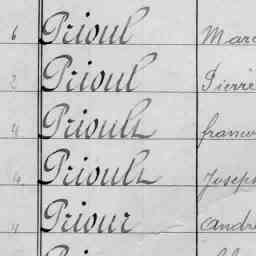 6 Prioul Marc
2 Prioul Pierre
4 Prioult franco
4 Prioult Joseph
4 Priour andré